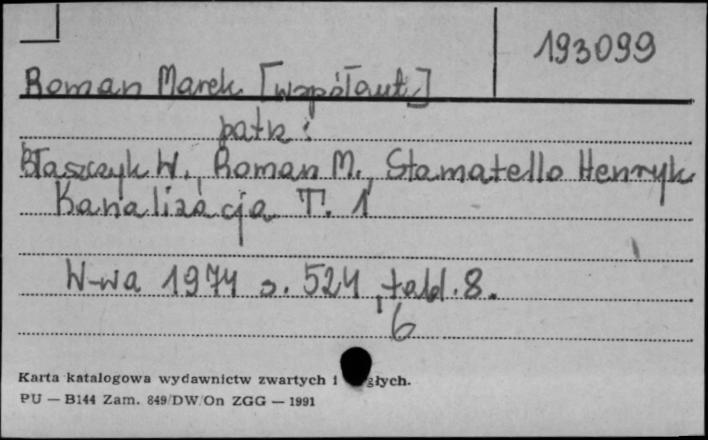 193099
Roman Marek [współaut.]
patrz:
Błaszczyk W., Roman M., Stamatello Henryk
Kanalizacja T. 1
W-wa 1974 s. 524, tabl. 8.
6
Karta katalogowa wydawnictw zwartych i głych.
PU — B144 Zam. 849/DW/On ZGG — 1991